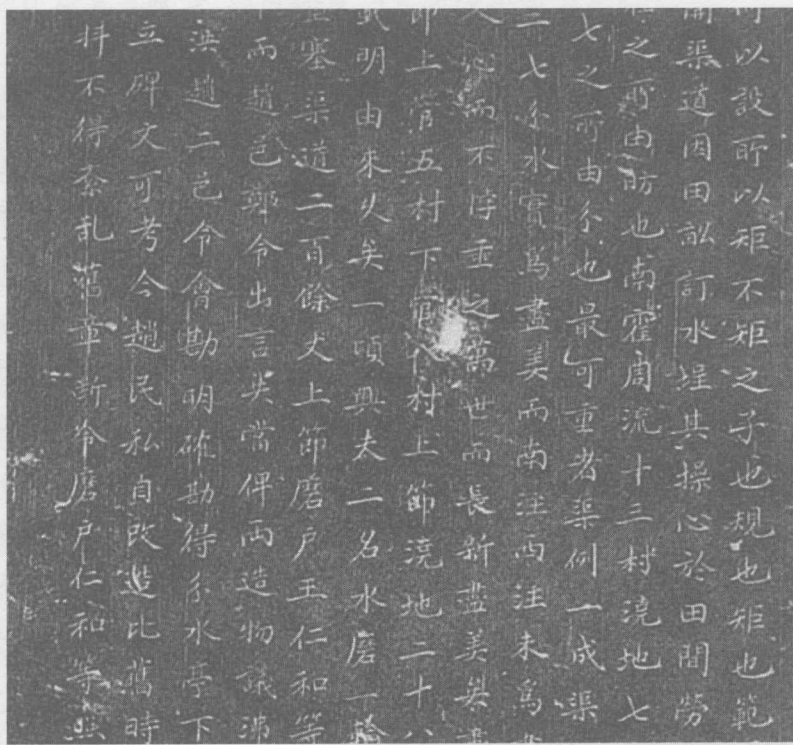 以設所以矩不矩之子也規也矩也範
開渠道因田畝訂水埕其操心於田間勞
之所由昉也南霍周流十三村澆地七
七之所由分也最可重者渠例一成渠
三七分水實為盡美而南注西注未為
而不悖垂之萬世而長新盡美矣
節上管五村下管八村上節澆地二十八
明由來久矣一頃興夫二名水磨一輪
塞渠道二百餘丈上節磨戶王仁和等
而趙邑鄭令出言失當俾兩造物議沸
洪趙二邑令會勘明確勘得分水亭下
立碑文可考今趙民私自改造比舊時
拜不得紊乱舊章斷令磨戶仁和等